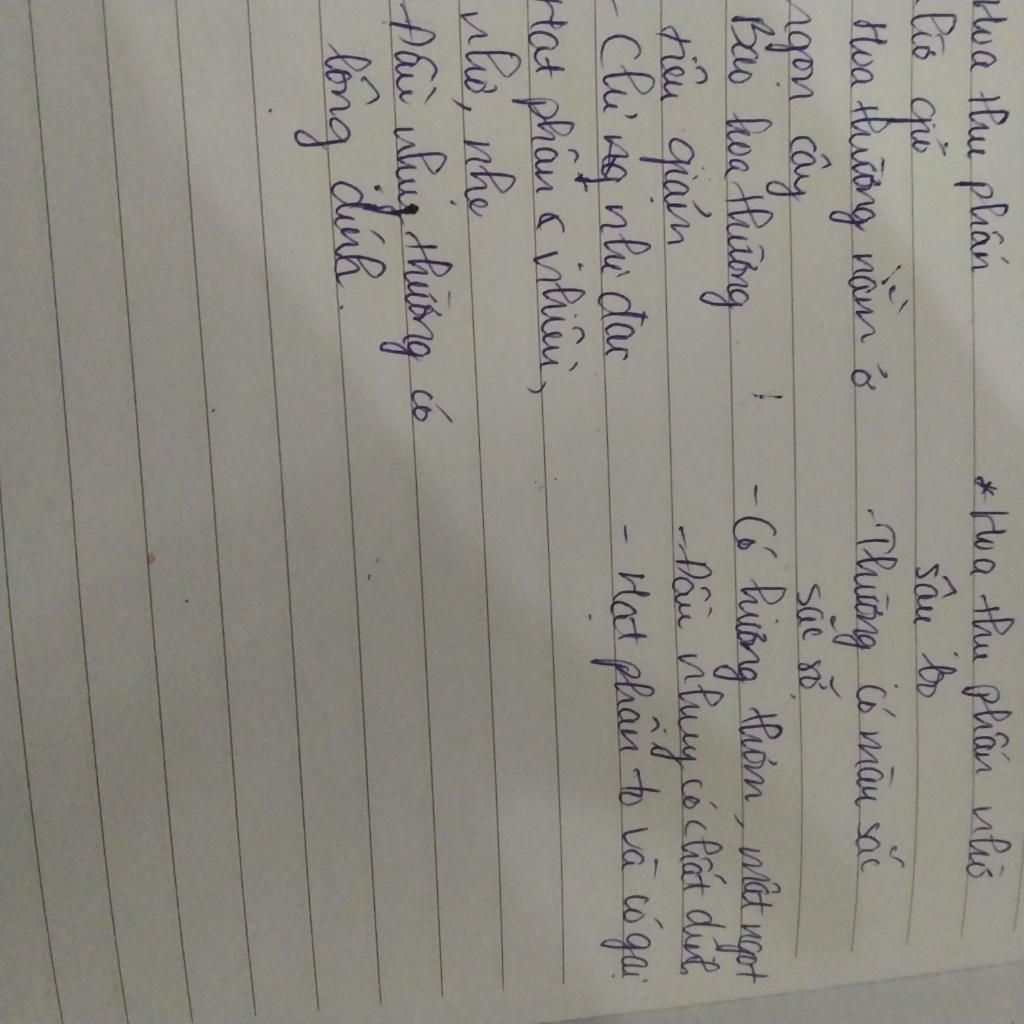 Hoa thụ phấn
nhờ gió
Hoa thường nằm ở
ngọn cây
Bao hoa thường
tiêu giảm
- Chỉ nhị dài
Hạt phấn nhiều,
nhỏ, nhẹ
- Đầu nhụy thường có
lông dính.
* Hoa thụ phấn nhờ
sâu bọ
- Thường có màu sắc
sặc sỡ
- Có hương thơm, mật ngọt
- Đầu nhụy có chất dính
- Hạt phấn to và có gai